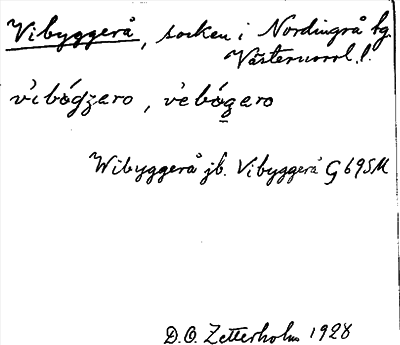 Vibyggerå, socken i Nordingrå tg.
Västernorrl. l.
vìbógzero, vèbógero
Wibyggerå jb. Vibyggerå G 695 M
D.O. Zetterholm 1928